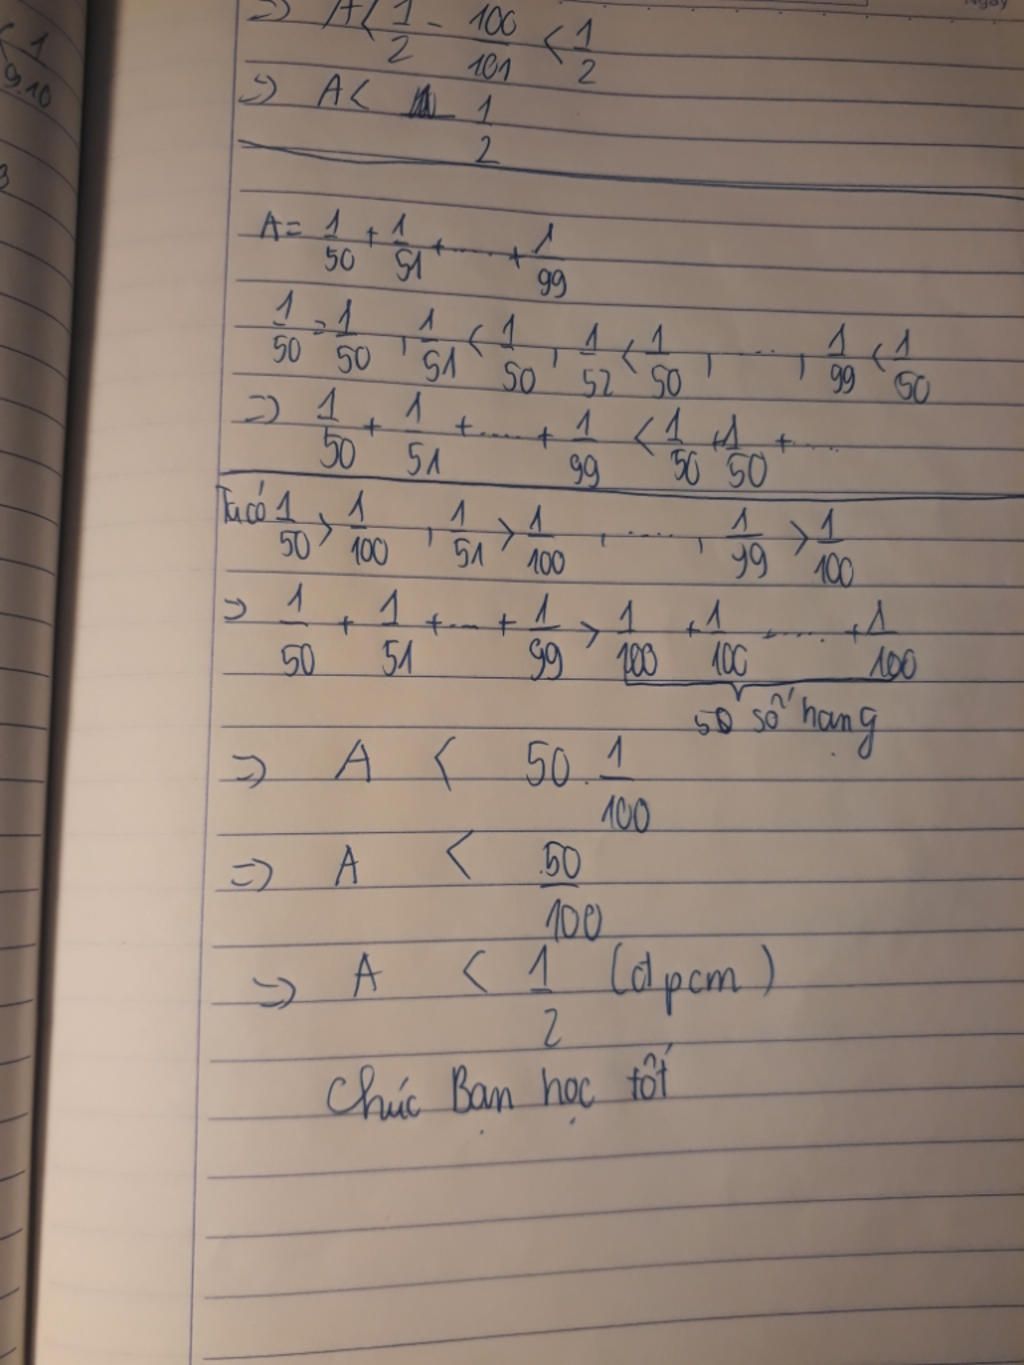 => A < 1/2 - 100/101 < 1/2
=> A < 1/2
A = 1/50 + 1/51 + ..... + 1/99
1/50 = 1/50 , 1/51 < 1/50 , 1/52 < 1/50 , ..... , 1/99 < 1/50
=> 1/50 + 1/51 + ..... + 1/99 < 1/50 + 1/50 + .....
Ta có 1/50 > 1/100 , 1/51 > 1/100 , ..... , 1/99 > 1/100
=> 1/50 + 1/51 + ... + 1/99 > 1/100 + 1/100 + ..... + 1/100
50 số hạng
=> A < 50 . 1/100
=> A < 50/100
=> A < 1/2 (đpcm)
Chúc Bạn học tốt